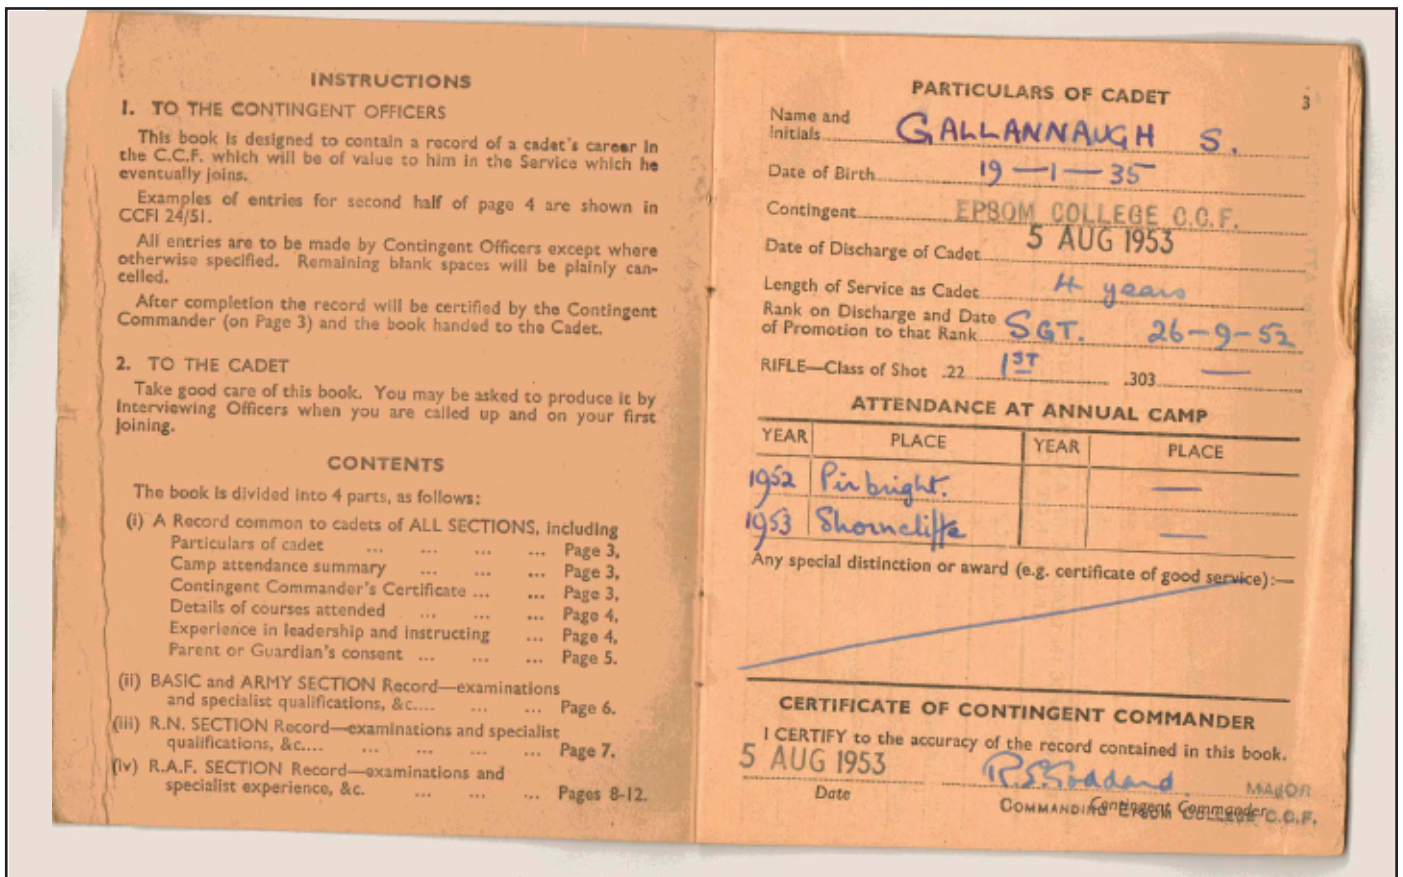 INSTRUCTIONS
1. TO THE CONTINGENT OFFICERS
This book is designed to contain a record of a cadet's career in
the C.C.F. which will be of value to him in the Service which he
eventually joins.
Examples of entries for second half of page 4 are shown in
CCFI 24/51.
All entries are to be made by Contingent Officers except where
otherwise specified. Remaining blank spaces will be plainly can-
celled.
After completion the record will be certified by the Contingent
Commander (on Page 3) and the book handed to the Cadet.
2. TO THE CADET
Take good care of this book. You may be asked to produce it by
Interviewing Officers when you are called up and on your first
joining.
CONTENTS
The book is divided into 4 parts, as follows:
(i) A Record common to cadets of ALL SECTIONS, including
Particulars of cadet ... ... ... ... Page 3,
Camp attendance summary ... ... ... Page 3,
Contingent Commander's Certificate ... ... Page 3,
Details of courses attended ... ... ... Page 4,
Experience in leadership and instructing ... Page 4,
Parent or Guardian's consent ... ... ... Page 5.
(ii) BASIC and ARMY SECTION Record—examinations
and specialist qualifications, &c.... ... ... Page 6.
(iii) R.N. SECTION Record—examinations and specialist
qualifications, &c.... ... ... ... ... Page 7.
(iv) R.A.F. SECTION Record—examinations and
specialist experience, &c. ... ... ... Pages 8-12.
3
PARTICULARS OF CADET
Name and
Initials GALLANNAUGH S.
Date of Birth 19—1—35
Contingent EPSOM COLLEGE C.C.F.
Date of Discharge of Cadet 5 AUG 1953
Length of Service as Cadet 4 years
Rank on Discharge and Date
of Promotion to that Rank SGT. 26-9-52
RIFLE—Class of Shot .22 1ST .303 —
ATTENDANCE AT ANNUAL CAMP
YEAR PLACE YEAR PLACE
1952 Pirbright. —
1953 Shorncliffe —
Any special distinction or award (e.g. certificate of good service):—
CERTIFICATE OF CONTINGENT COMMANDER
I CERTIFY to the accuracy of the record contained in this book.
5 AUG 1953 R.S. Goddard. MAJOR
Date Contingent Commander
COMMANDING EPSOM COLLEGE C.C.F.